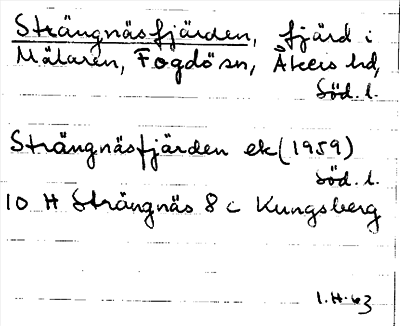 Strängnäsfjärden, fjärd i
Mälaren, Fogdö sn, Åkers hd,
Söd. l.
Strängnäsfjärden ek (1959)
Söd. l.
10 H Strängnäs 8 c Kungsberg
I.H. 63